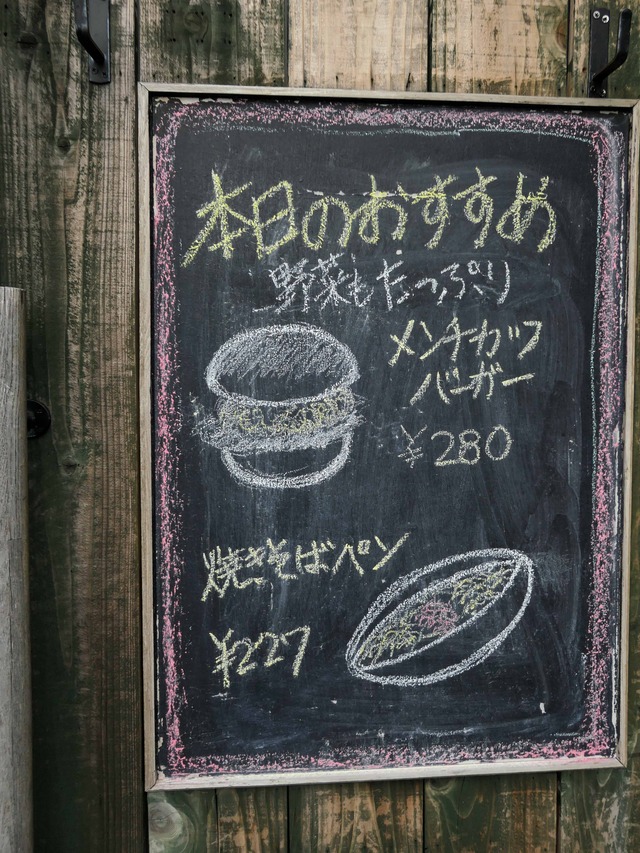 本日のおすすめ
野菜もたっぷり
メンチカツ
バーガー
¥280
焼きそばパン
¥227